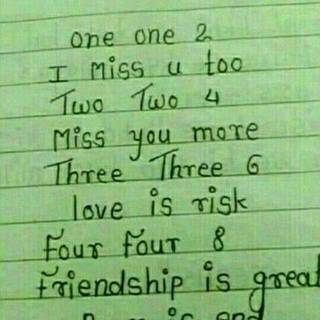 one one 2
I Miss u too
Two Two 4
Miss you more
Three Three 6
love is risk
Four Four 8
Friendship is great
is end